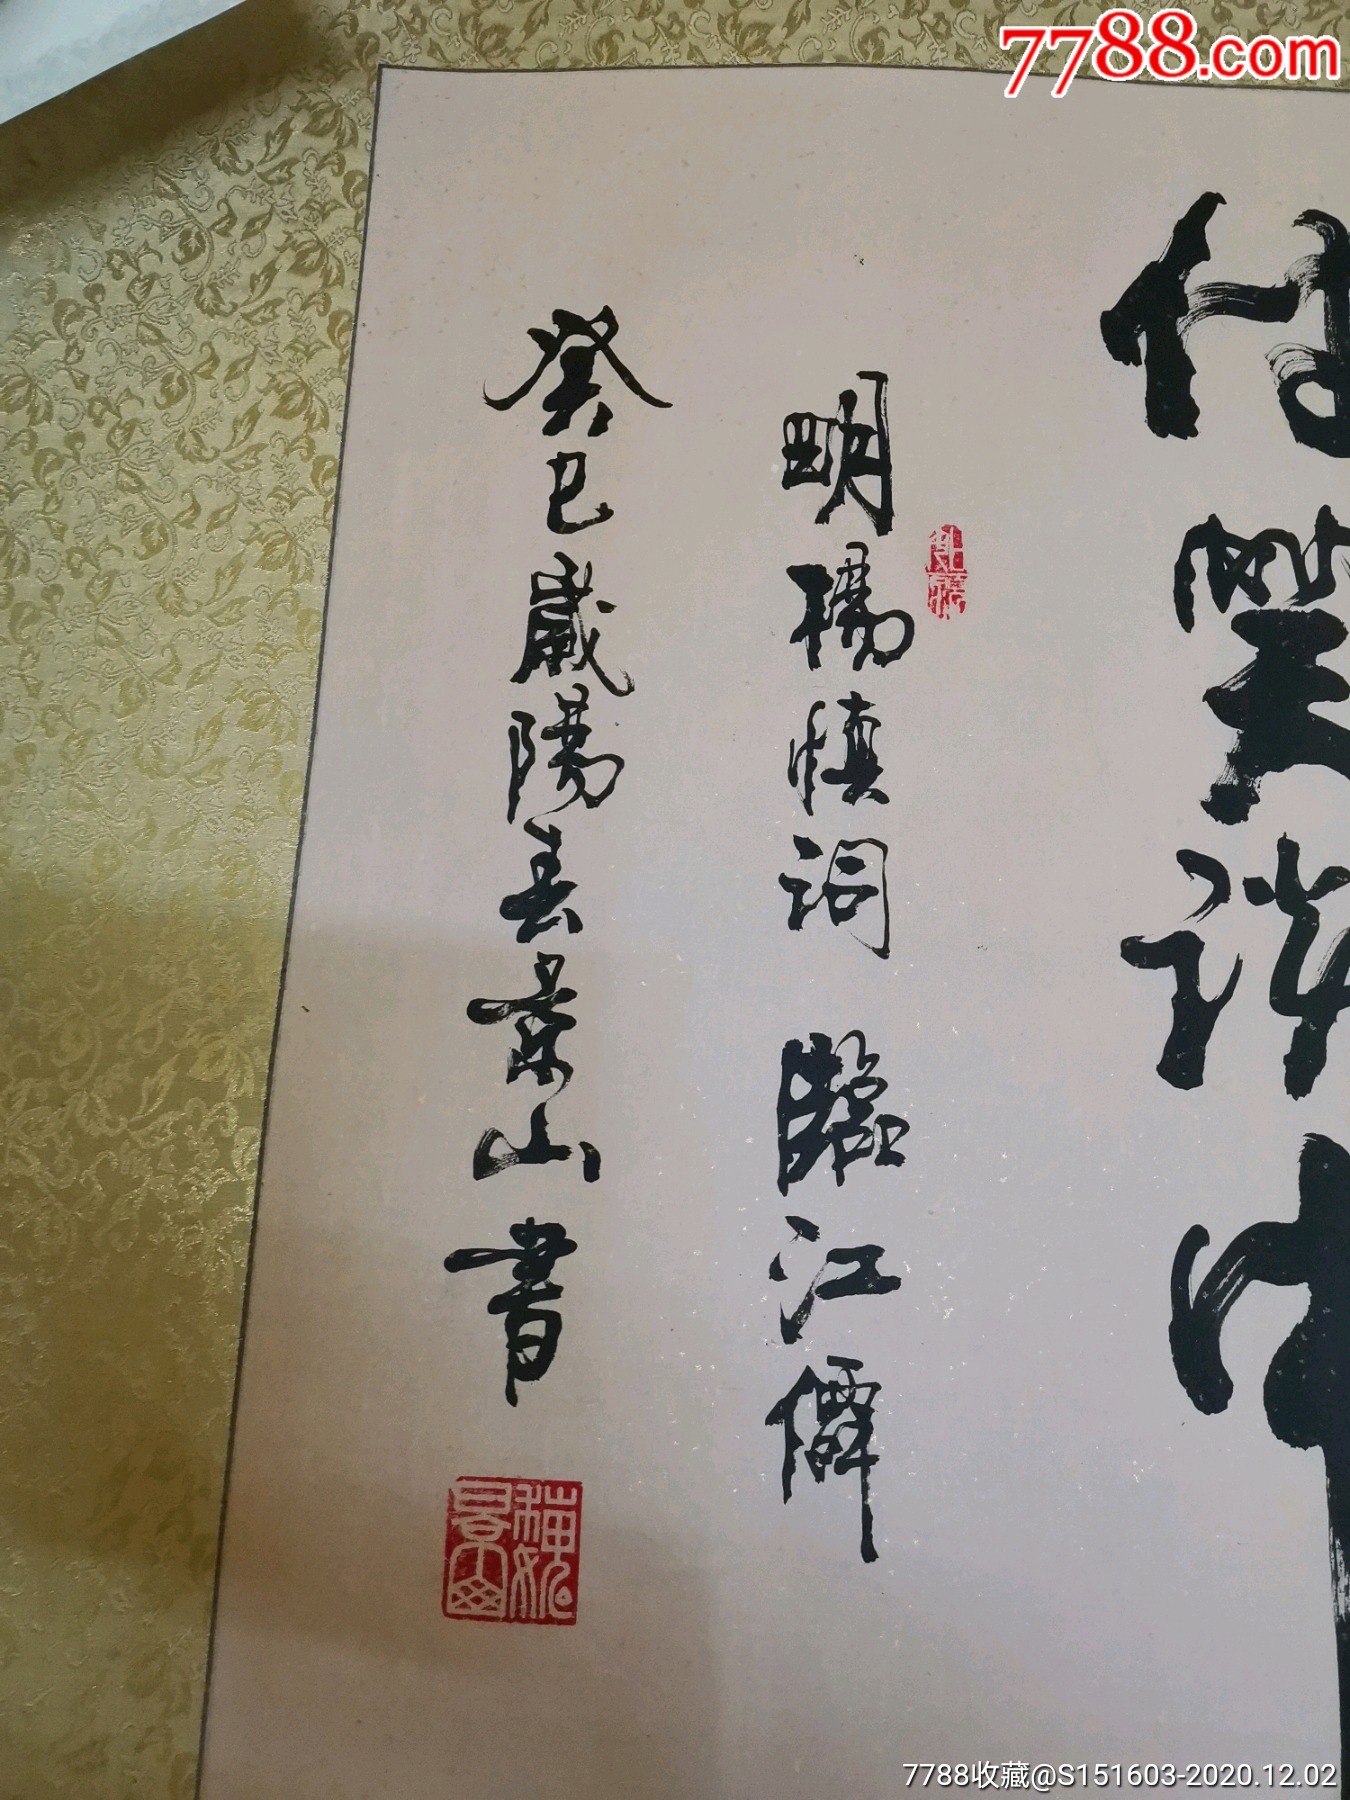 7788.com
付笑談中
明楊慎詞 臨江僊
癸巳歲陽春景山書
7788收藏@S151603-2020.12.02